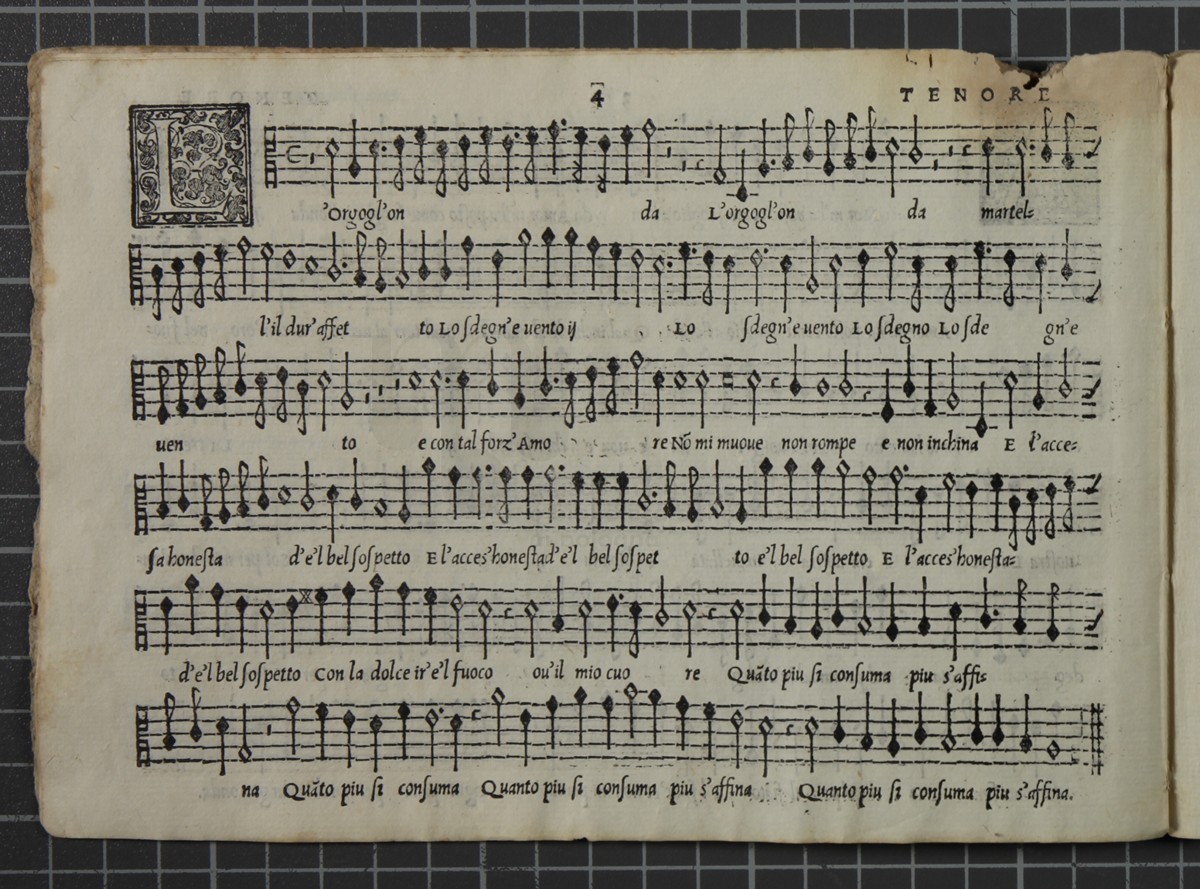 4 TENORE
L'Orgogl'on da L'orgogl'on da martel=
l'il dur'affet to Lo ſdegn'e uento ij Lo ſdegn'e uento Lo ſdegno Lo ſde gn'e
uen to e con tal forz'Amo re Nõ mi muoue non rompe e non inchina E l'acce=
ſa honeſta d'e'l bel ſoſpetto E l'acces'honeſta d'e'l bel ſoſpet to e'l bel ſoſpetto E l'acces'honeſta=
d'e'l bel ſoſpetto Con la dolce ir'e'l fuoco ou'il mio cuo re Quãto piu ſi conſuma piu s'affi=
na Quãto piu ſi conſuma Quanto piu ſi conſuma piu s'affina Quanto piu ſi conſuma piu s'affina.